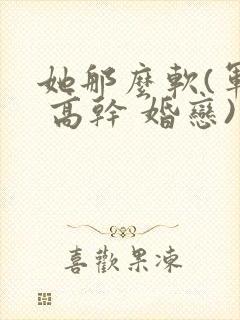 她那麼軟(軍
高幹 婚戀)
喜歡果凍